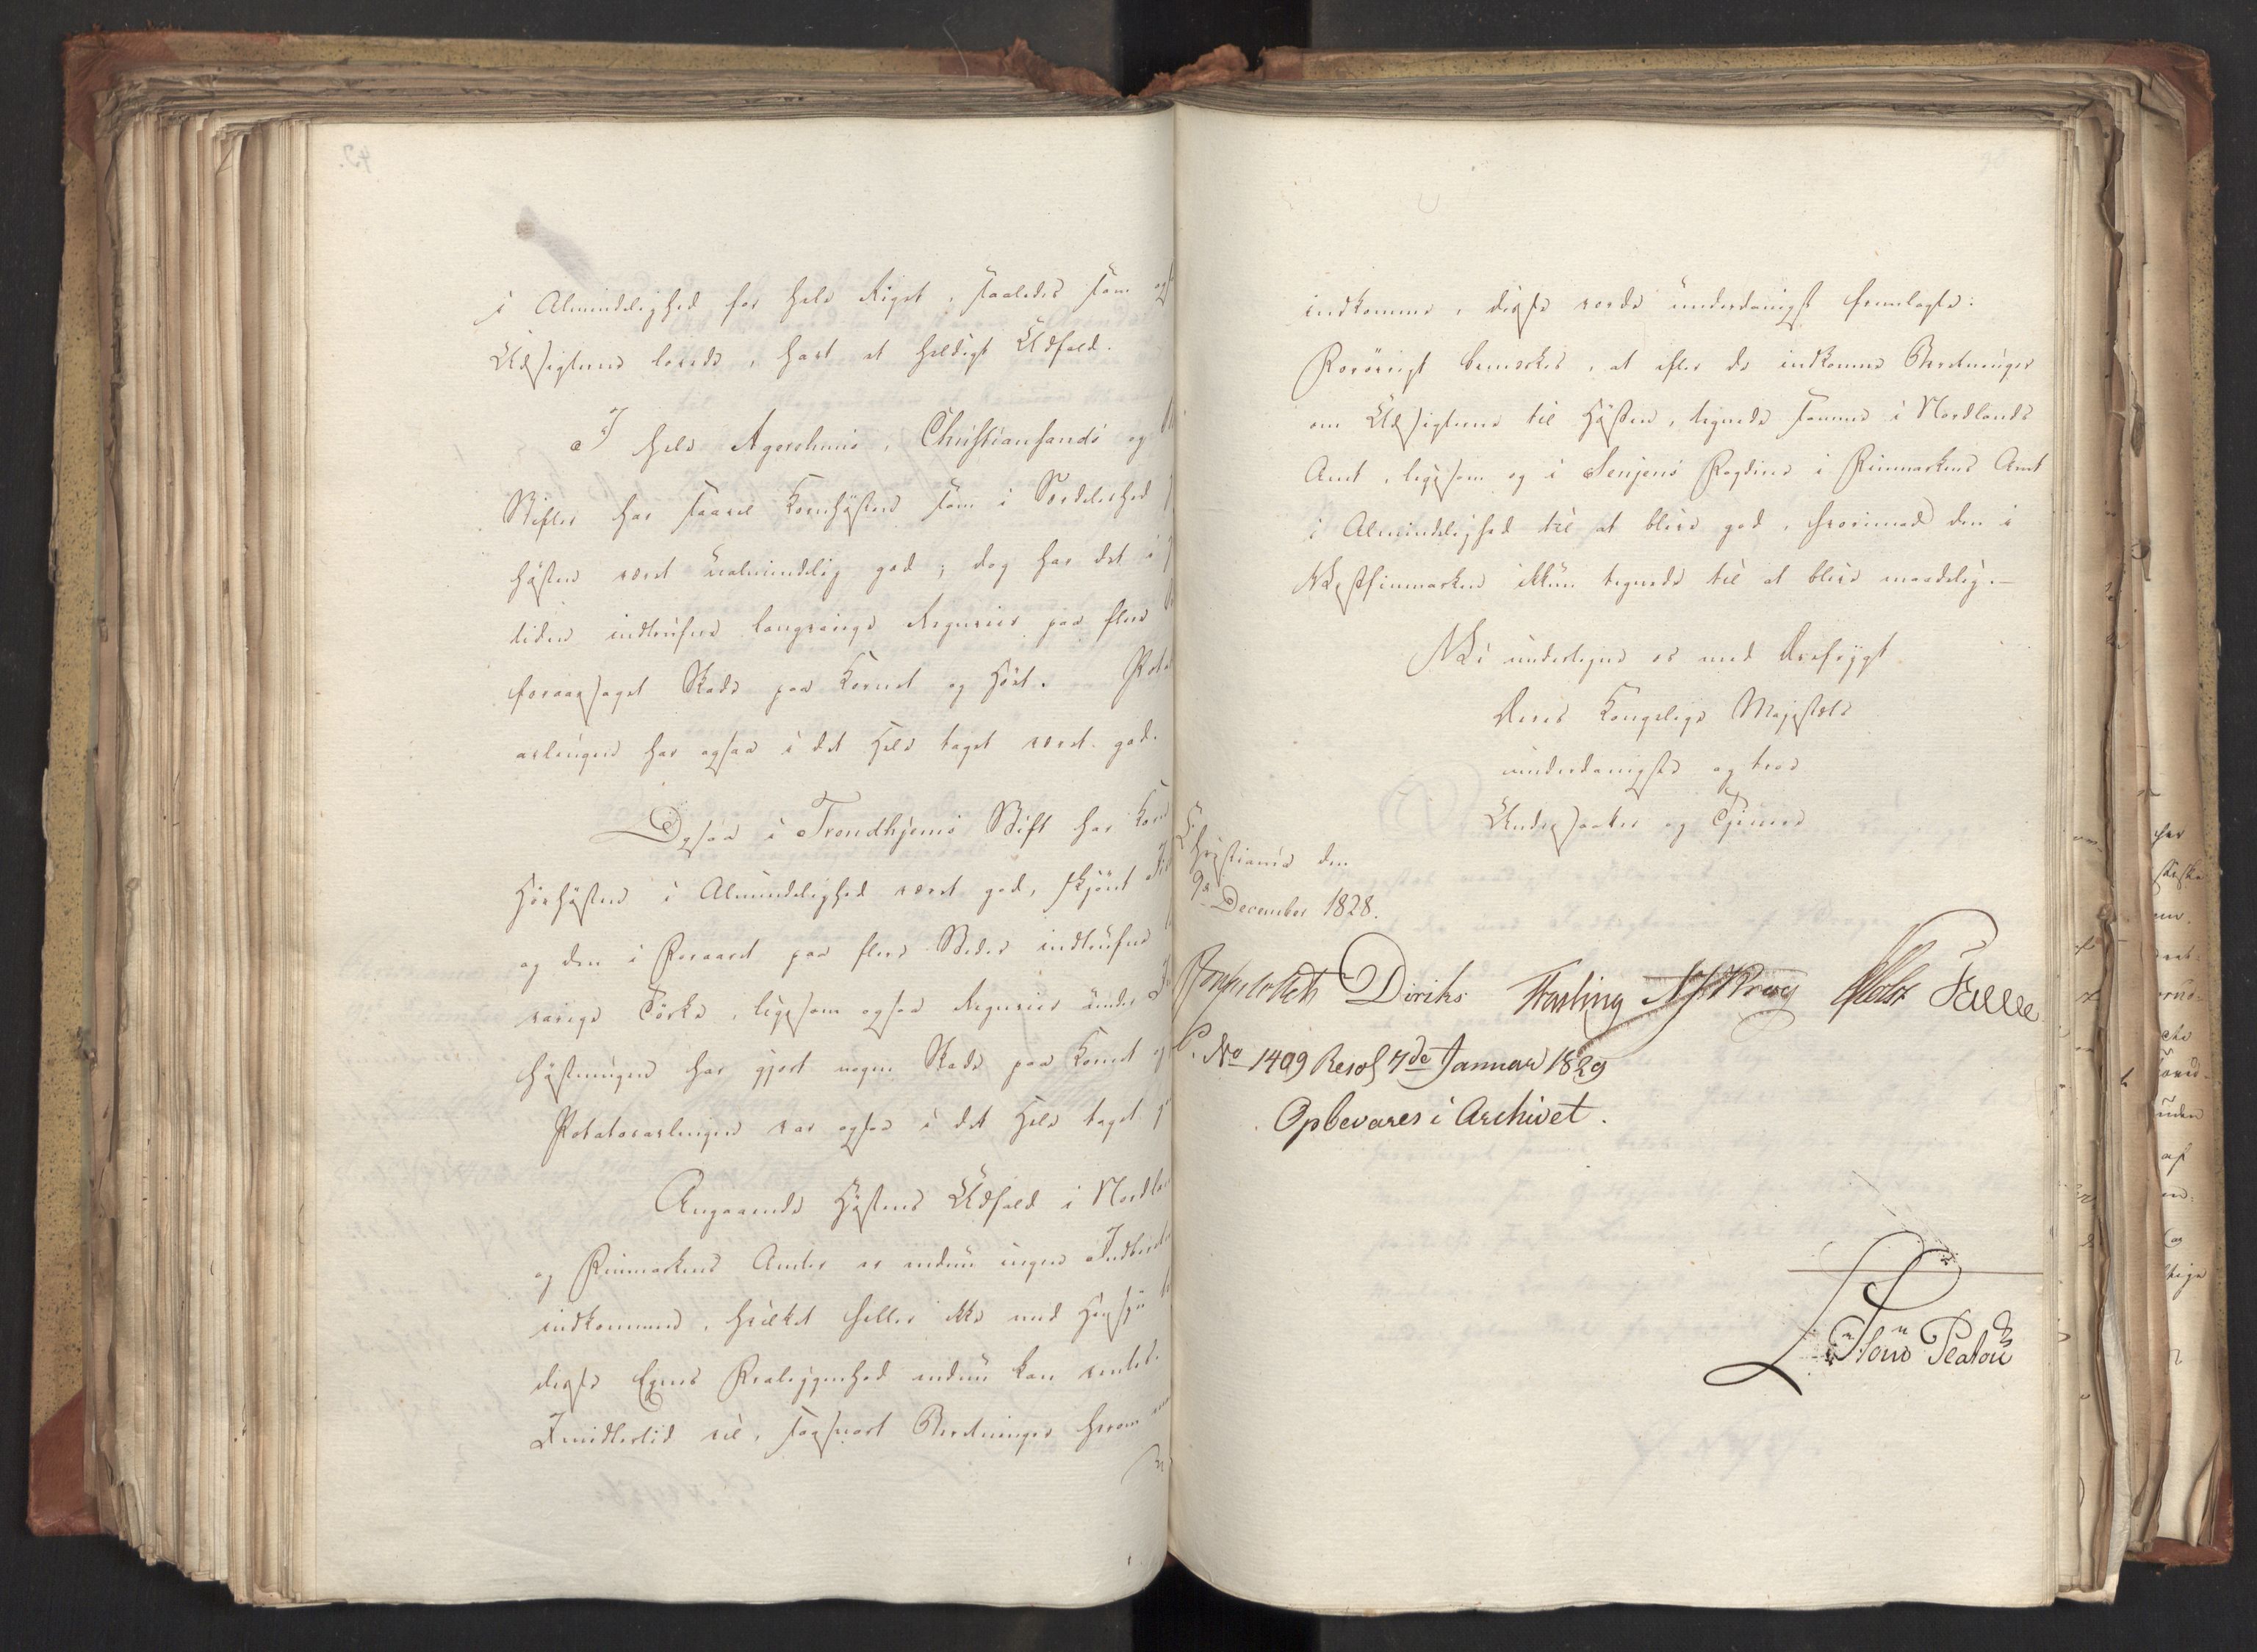 i Almindelighed for hele Riget, saaledes som og
Udsigterne lovede, havt et heldigt Udfald.
I hele Agershuus, Christiansands og
Stifter har saavel Kornhøsten som i Særdeleshed
høsten været ualmindelig god; dog har det i
tiden indtrufne langvarige Regnveir paa flere
foraarsaget Skade paa Kornet og Høet. Pota
avlingen har ogsaa i det Hele taget været god.
Ogsaa i Trondhjems Stift har Korn
Høehøsten i Almindelighed været god, skjønt
og den i Foraaret paa flere Steder indtrufne
varige Tørke, ligesom ogsaa Regnveir under
Høstningen har gjort nogen Skade paa Kornet og
Potatosavlingen var ogsaa i det Hele taget
Angaaende Høstens Udfald i Nordlan
og Finmarkens Amter er endnu ingen Indberet
indkommen, hvilket heller ikke med Hensyn
disse Egnes Beliggenhed endnu kan ventes.
Imidlertid vil, saasnart Beretninger herom
indkomme, disse vorde underdanigst fremlagte.
Forøvrigt bemærkes, at efter de indkomne Beretninger
om Udsigterne til Høsten, tegnede samme i Nordlands
Amt, ligesom og i Senjens Fogderie i Finmarkens Amt
i Almindelighed til at blive god, hvorimod den i
Vestfinmarken ikkun tegnede til at blive maadelig.—
Vi undertegne os med Ærefrygt
Deres Kongelige Majestæts
underdanigste og troe
Undersaatter og Tjenere
Christiania den
9de December 1828.
Diriks Fasting Krog Holst Falle
No 1499 Resol 7de Januar 1829
Opbevares i Archivet.
Skons Platou